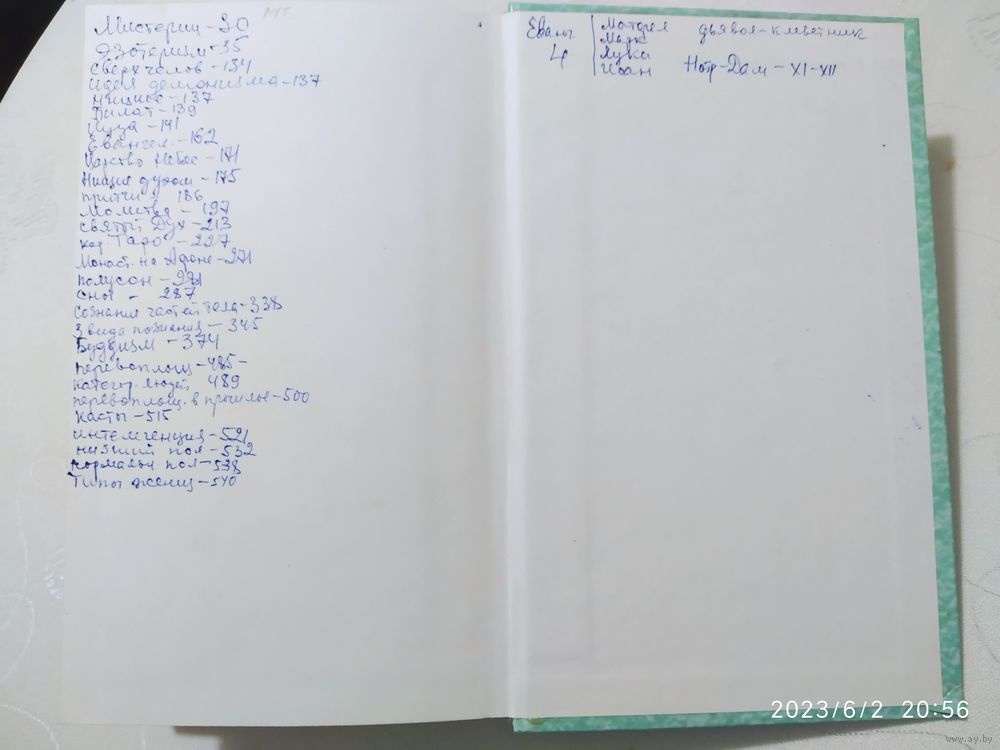 Мистерии - 30
Эзотеризм - 35
Сверхчелов - 134
Идея демонизма - 137
Ницше - 137
Пилат - 139
Иуда - 141
Евангел. - 162
Царство Небес - 171
Нищие духом - 175
притчи - 186
Молитва - 197
Святой Дух - 213
кар. Таро - 227
Монаст. на Афоне - 271
полусон - 281
Сны - 287
Сознания частей тела - 338
3 вида познания - 345
Буддизм - 374
перевоплощ - 485 -
категор. людей 489
перевоплощ. в прошлое - 500
Касты - 515
интеллигенция - 521
низший пол - 532
нормальн пол - 538
Типы женщ - 540
Еванг. 4
Матфея дьявол - клеветник
Марк
Лука
Иоан Нотр-Дам - XI-XII
2023/6/2 20:56
www.ay.by